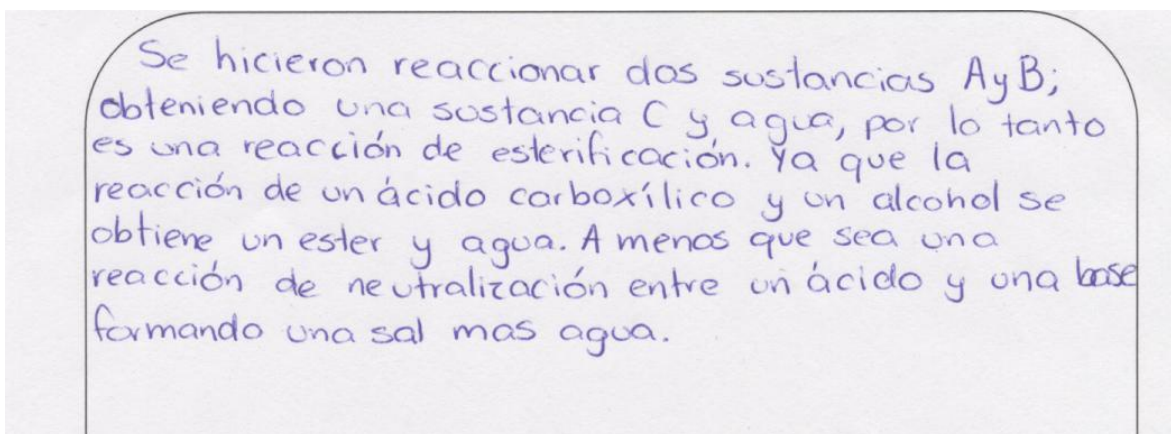 Se hicieron reaccionar dos sustancias A y B;
obteniendo una sustancia C y agua, por lo tanto
es una reacción de esterificación. Ya que la
reacción de un ácido carboxílico y un alcohol se
obtiene un ester y agua. A menos que sea una
reacción de neutralización entre un ácido y una base
formando una sal mas agua.